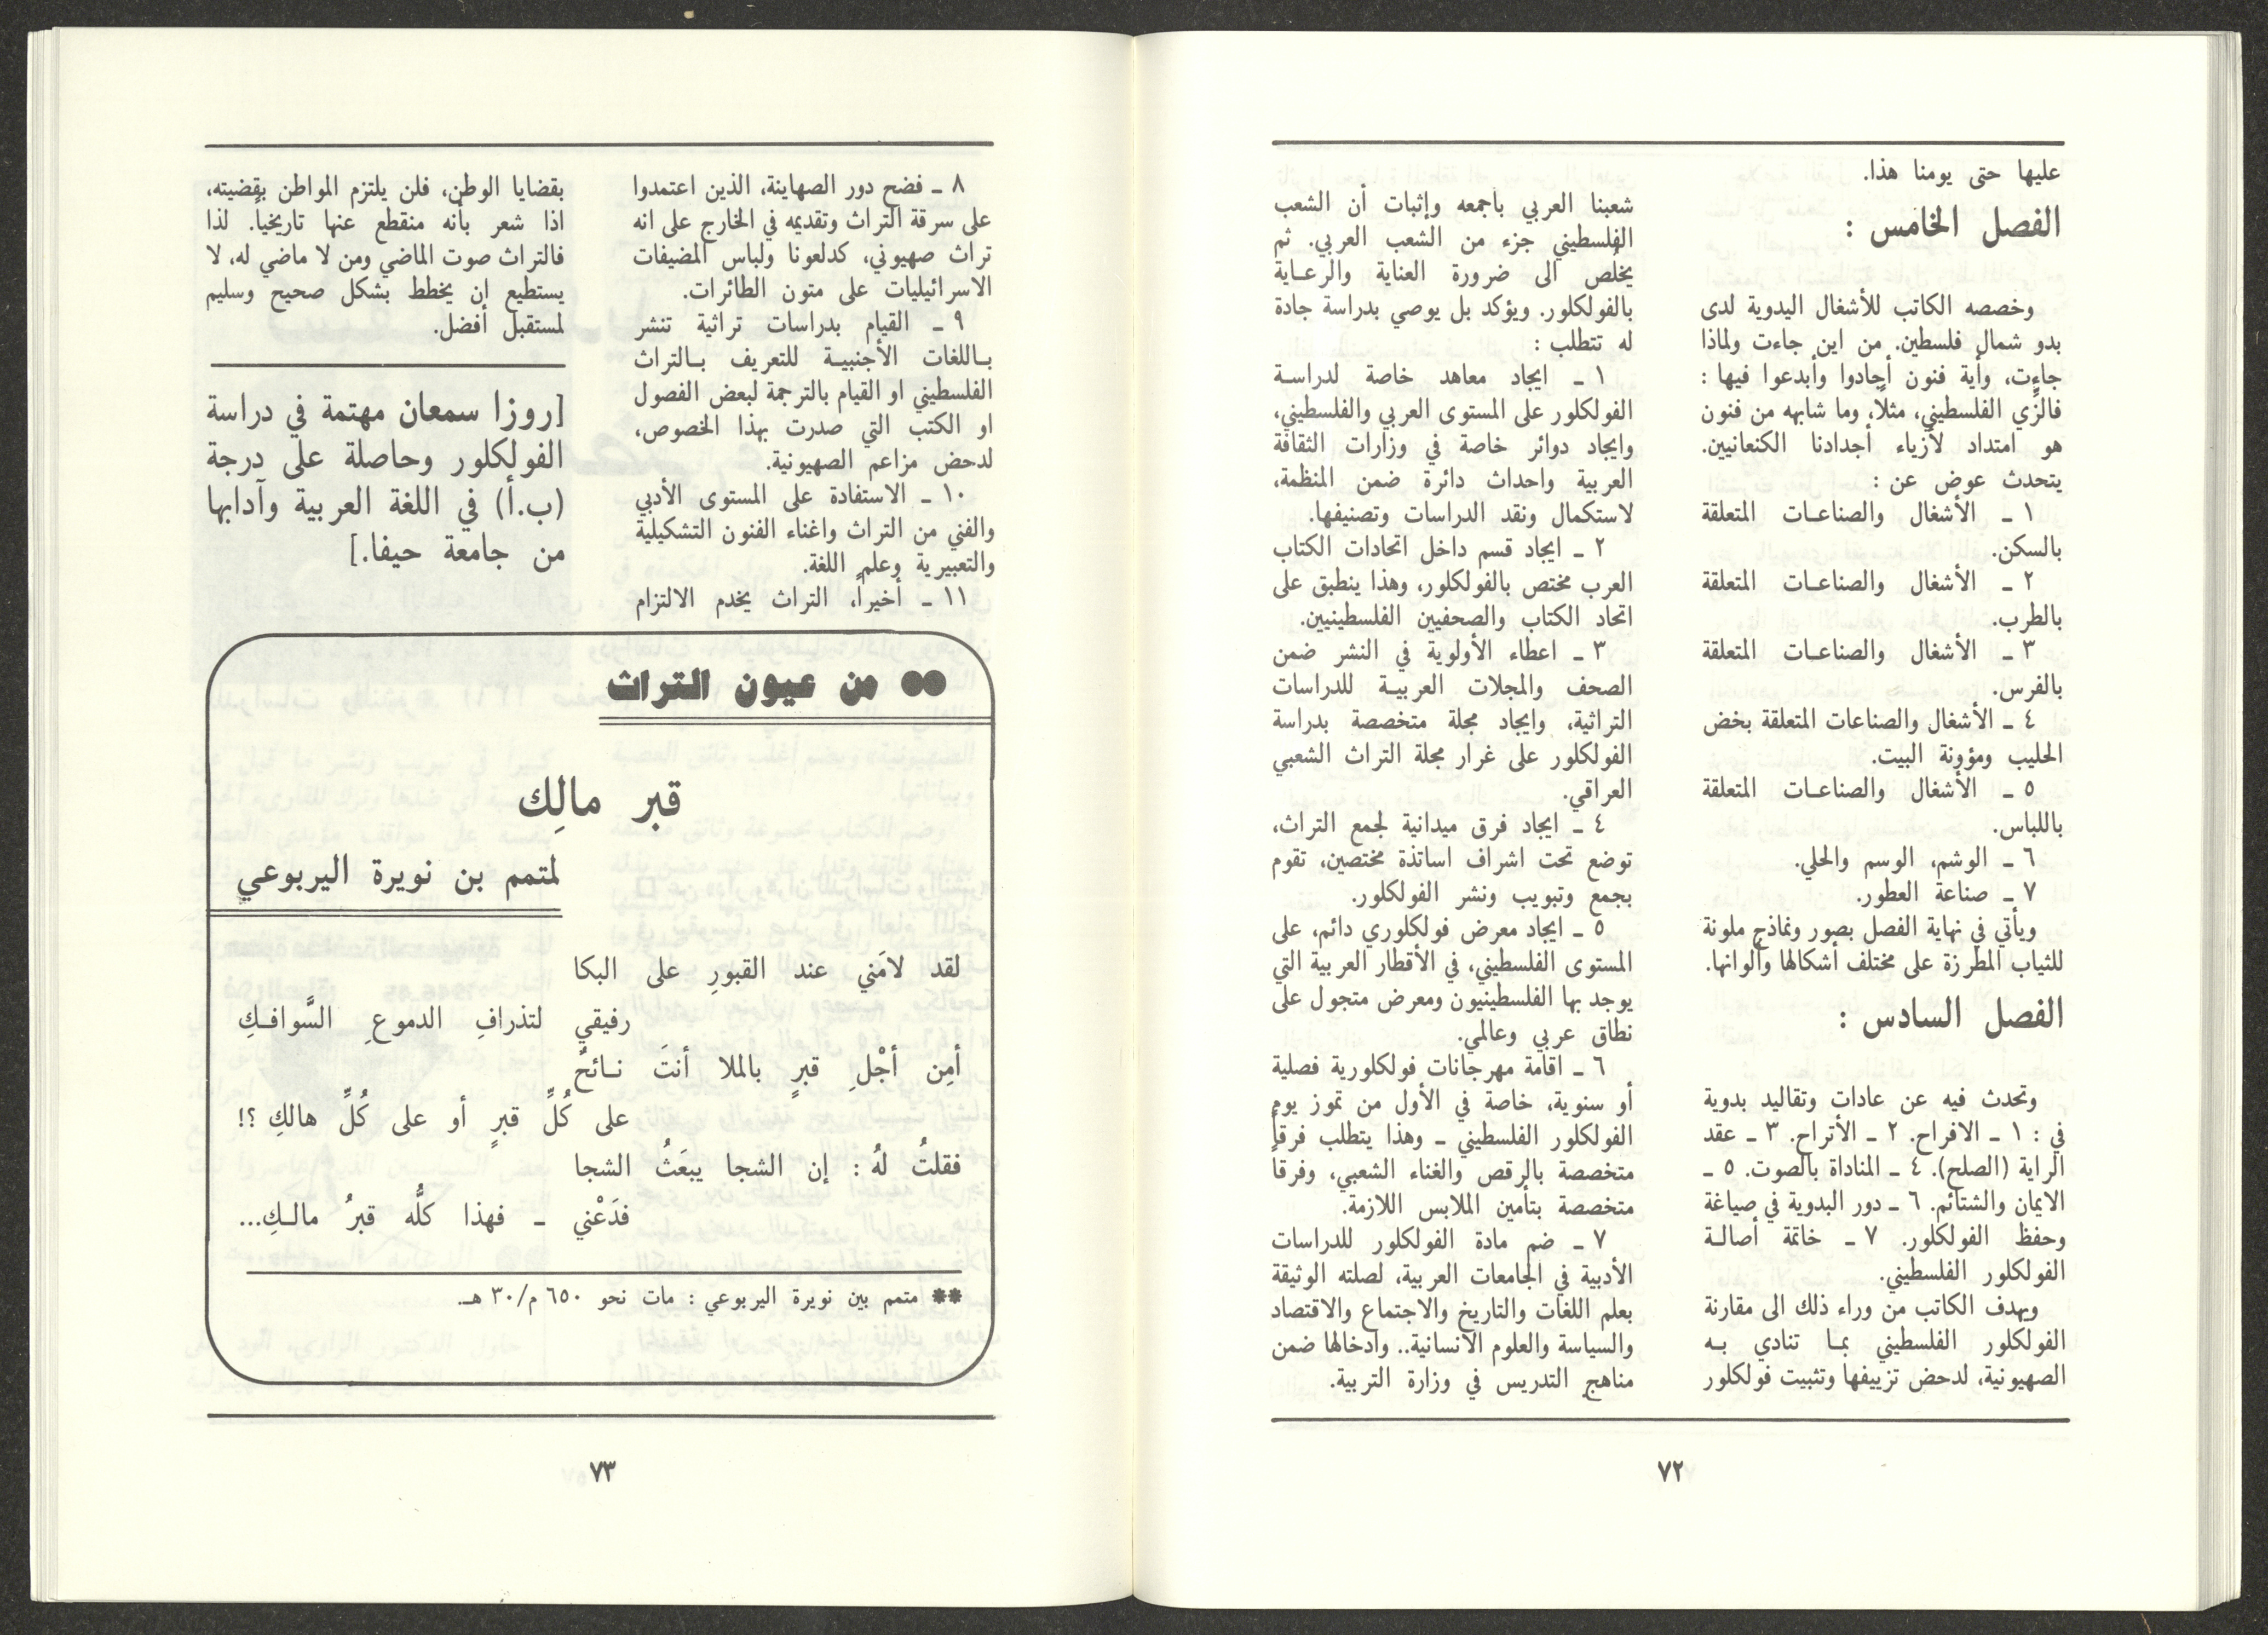 عليها حتى يومنا هذا.
الفصل الخامس :
وخصصه الكاتب للأشغال اليدوية لدى
بدو شمال فلسطين. من اين جاءت ولماذا
جاءت، وأية فنون أجادوا وأبدعوا فيها :
فالزي الفلسطيني، مثلاً، وما شابهه من فنون
هو امتداد لأزياء أجدادنا الكنعانيين.
يتحدث عوض عن :
١ ـ الأشغال والصناعـات المتعلقة
بالسكن.
٢ ـ الأشغال والصناعـات المتعلقة
بالطرب.
٣ ـ الأشغال والصناعـات المتعلقة
بالفرس.
٤ ـ الأشغال والصناعات المتعلقة بخض
الحليب ومؤونة البيت.
٥ ـ الأشغال والصناعـات المتعلقة
باللباس.
٦ ـ الوشم، الوسم والحلي.
٧ ـ صناعة العطور.
ويأتي في نهاية الفصل بصور ونماذج ملونة
للثياب المطرزة على مختلف أشكالها وألوانها.
الفصل السادس :
وتحدث فيه عن عادات وتقاليد بدوية
في : ١ ـ الافراح. ٢ ـ الأتراح. ٣ ـ عقد
الراية (الصلح). ٤ ـ المناداة بالصوت. ٥ ـ
الايمان والشتائم. ٦ ـ دور البدوية في صياغة
وحفظ الفولكلور. ٧ ـ خاتمة أصالـة
الفولكلور الفلسطيني.
ويهدف الكاتب من وراء ذلك الى مقارنة
الفولكلور الفلسطيني بمـا تنادي بـه
الصهيونية، لدحض تزييفها وتثبيت فولكلور
شعبنا العربي بأجمعه وإثبات أن الشعب
الفلسطيني جزء من الشعب العربي. ثم
يخلُص الى ضرورة العناية والرعـاية
بالفولكلور. ويؤكد بل يوصي بدراسة جادة
له تتطلب :
١ ـ ايجاد معاهد خاصة لدراسـة
الفولكلور على المستوى العربي والفلسطيني،
وايجاد دوائر خاصة في وزارات الثقافة
العربية واحداث دائرة ضمن المنظمة،
لاستكمال ونقد الدراسات وتصنيفها.
٢ ـ ايجاد قسم داخل اتحادات الكتاب
العرب مختص بالفولكلور، وهذا ينطبق على
اتحاد الكتاب والصحفيين الفلسطينيين.
٣ ـ اعطاء الأولوية في النشر ضمن
الصحف والمجلات العربيـة للدراسات
التراثية، وايجاد مجلة متخصصة بدراسة
الفولكلور على غرار مجلة التراث الشعبي
العراقي.
٤ ـ ايجاد فرق ميدانية لجمع التراث،
توضع تحت اشراف اساتذة مختصين، تقوم
بجمع وتبويب ونشر الفولكلور.
٥ ـ ايجاد معرض فولكلوري دائم، على
المستوى الفلسطيني، في الأقطار العربية التي
يوجد بها الفلسطينيون ومعرض متجول على
نطاق عربي وعالمي.
٦ ـ اقامة مهرجانات فولكلورية فصلية
أو سنوية، خاصة في الأول من تموز يوم
الفولكلور الفلسطيني ـ وهذا يتطلب فرقاً
متخصصة بالرقص والغناء الشعبي، وفرقاً
متخصصة بتأمين الملابس اللازمة.
٧ ـ ضم مادة الفولكلور للدراسات
الأدبية في الجامعات العربية، لصلته الوثيقة
بعلم اللغات والتاريخ والاجتماع والاقتصاد
والسياسة والعلوم الانسانية.. وادخالها ضمن
مناهج التدريس في وزارة التربية.
٧٢
٨ ـ فضح دور الصهاينة، الذين اعتمدوا
على سرقة التراث وتقديمه في الخارج على انه
تراث صهيوني، كدلعونا ولباس المضيفات
الاسرائيليات على متون الطائرات.
٩ ـ القيام بدراسات تراثية تنشر
بـاللغات الأجنبيـة للتعريف بـالتراث
الفلسطيني او القيام بالترجمة لبعض الفصول
او الكتب التي صدرت بهذا الخصوص،
لدحض مزاعم الصهيونية.
١٠ ـ الاستفادة على المستوى الأدبي
والفني من التراث واغناء الفنون التشكيلية
والتعبيرية وعلم اللغة.
١١ ـ أخيراً، التراث يخدم الالتزام
بقضايا الوطن، فلن يلتزم المواطن بقضيته،
اذا شعر بأنه منقطع عنها تاريخياً. لذا
فالتراث صوت الماضي ومن لا ماضي له، لا
يستطيع ان يخطط بشكل صحيح وسليم
لمستقبل أفضل.
[روزا سمعان مهتمة في دراسة
الفولكلور وحاصلة على درجة
(ب.أ) في اللغة العربية وآدابها
من جامعة حيفا.]
●● من عيون التراث
قبر مالِك
لمتمم بن نويرة اليربوعي
لقد لامَني عند القبورِ على البكا
رفيقي لتذرافِ الدموعِ السَّوافـكِ
أمِن أجْلِ قبرٍ بالملا أنتَ نـائحٌ
على كُلِّ قبرٍ أو على كُلِّ هالكِ ؟!
فقلتُ لهُ : إن الشجا يبعَثُ الشجا
فدَعْني ـ فهذا كلُّه قبرُ مالـكِ...
** متمم بين نويرة اليربوعي : مات نحو ٦٥٠ م/٣٠ هـ.
٧٣